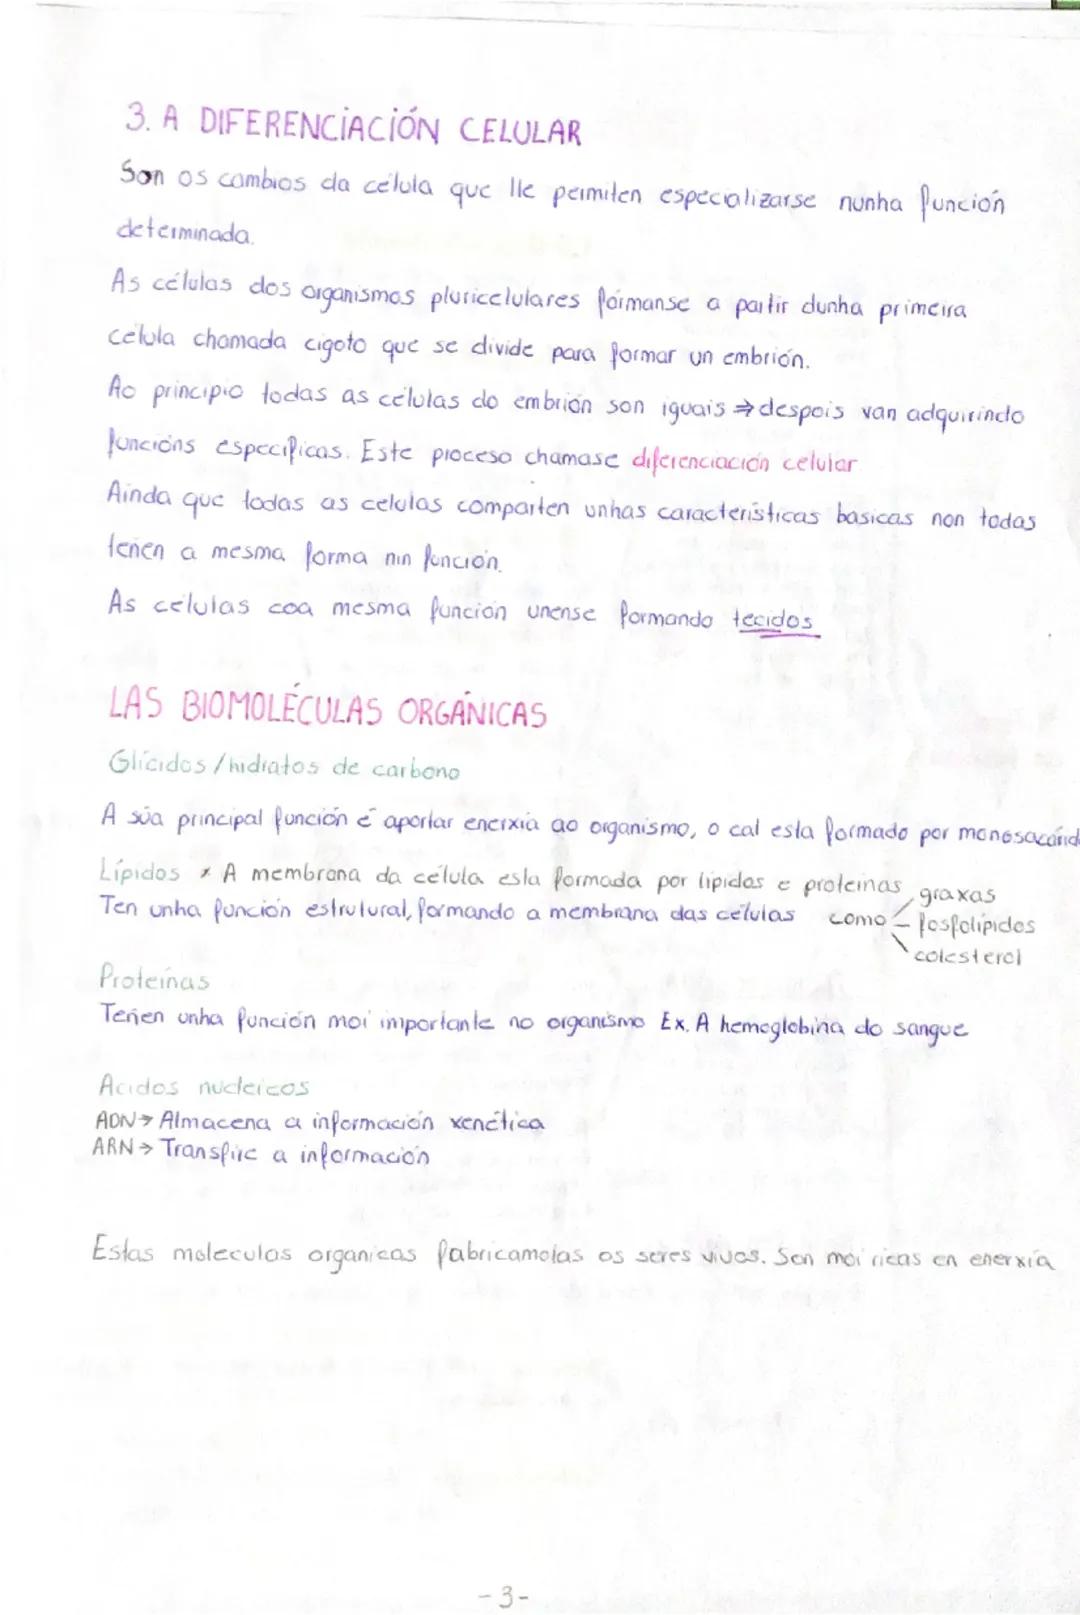 3. A DIFERENCIACIÓN CELULAR
Son os cambios da célula que lle permiten especializarse nunha función
determinada.
As células dos organismos pluricelulares fórmanse a partir dunha primeira
célula chamada cigoto que se divide para formar un embrión.
Ao principio todas as células do embrión son iguais ⇒ despois van adquirindo
funcións especificas. Este proceso chamase diferenciación celular
Ainda que todas as celulas comparten unhas características basicas non todas
teñen a mesma forma nin función.
As células coa mesma función unense formando tecidos
LAS BIOMOLÉCULAS ORGÁNICAS
Glícidos / hidratos de carbono
A súa principal función é aportar enerxía ao organismo, o cal esta formado por monosacárid
Lípidos * A membrana da célula esta formada por lipidos e proteinas graxas
Ten unha función estrutural, formando a membrana das células como - fosfolípidos
colesterol
Proteínas
Teñen unha función moi importante no organismo Ex. A hemoglobina do sangue
Acidos nucleicos
ADN → Almacena a información xenética
ARN → Transfire a información
Estas moleculas organicas fabricamolas os seres vivos. Son moi ricas en enerxía
- 3 -